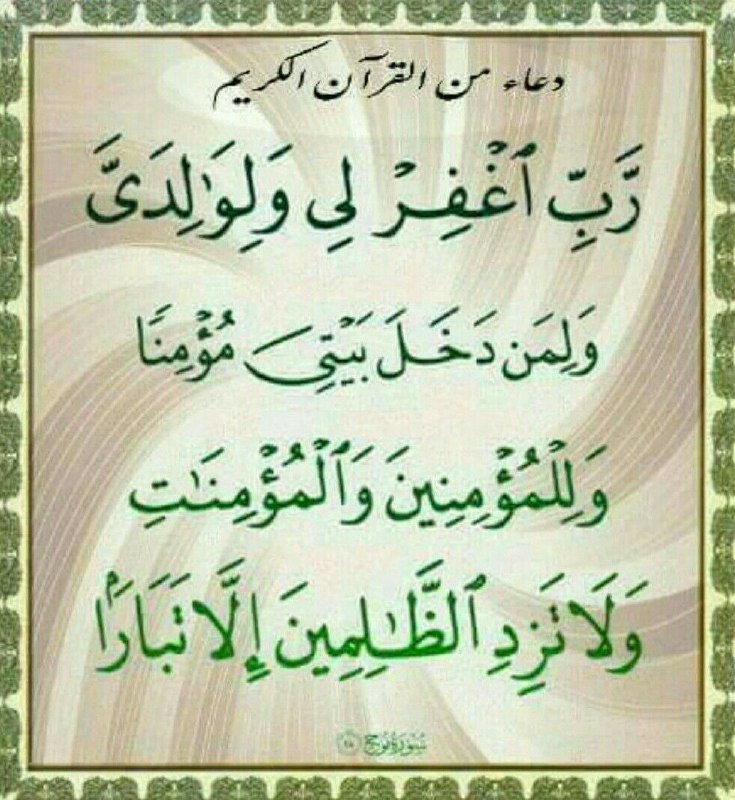 دعاء من القرآن الكريم
رَّبِّ ٱغْفِرْ لِي وَلِوَٰلِدَىَّ
وَلِمَن دَخَلَ بَيْتِىَ مُؤْمِنًا
وَلِلْمُؤْمِنِينَ وَٱلْمُؤْمِنَٰتِ
وَلَا تَزِدِ ٱلظَّٰلِمِينَ إِلَّا تَبَارًۢا
سُورَةُ نُوحٍ